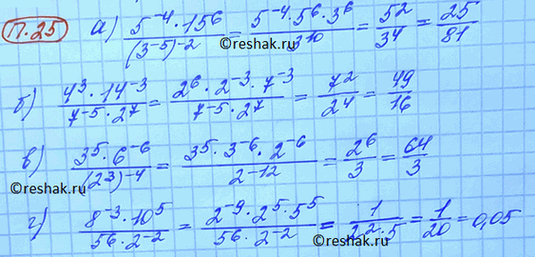 П.25 а) 5^-4 · 15^6 / (3^-5)^-2 = 5^-4 · 5^6 · 3^6 / 3^10 = 5^2 / 3^4 = 25/81
©reshak.ru
б) 4^3 · 14^-3 / 7^-5 · 2^7 = 2^6 · 2^-3 · 7^-3 / 7^-5 · 2^7 = 7^2 / 2^4 = 49/16
в) 3^5 · 6^-6 / (2^3)^-4 = 3^5 · 3^-6 · 2^-6 / 2^-12 = 2^6 / 3 = 64/3
©reshak.ru
г) 8^-3 · 10^5 / 5^6 · 2^-2 = 2^-9 · 2^5 · 5^5 / 5^6 · 2^-2 = 1 / 2^2 · 5 = 1/20 = 0,05
©reshak.ru